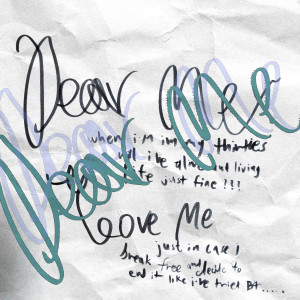 Dear Me
Dear Me
Dear Me
when i'm in my thirties
will i be alive and living
life just fine!!!
Love Me
just in case I
break free and decide to
end it like i've tried bt.....